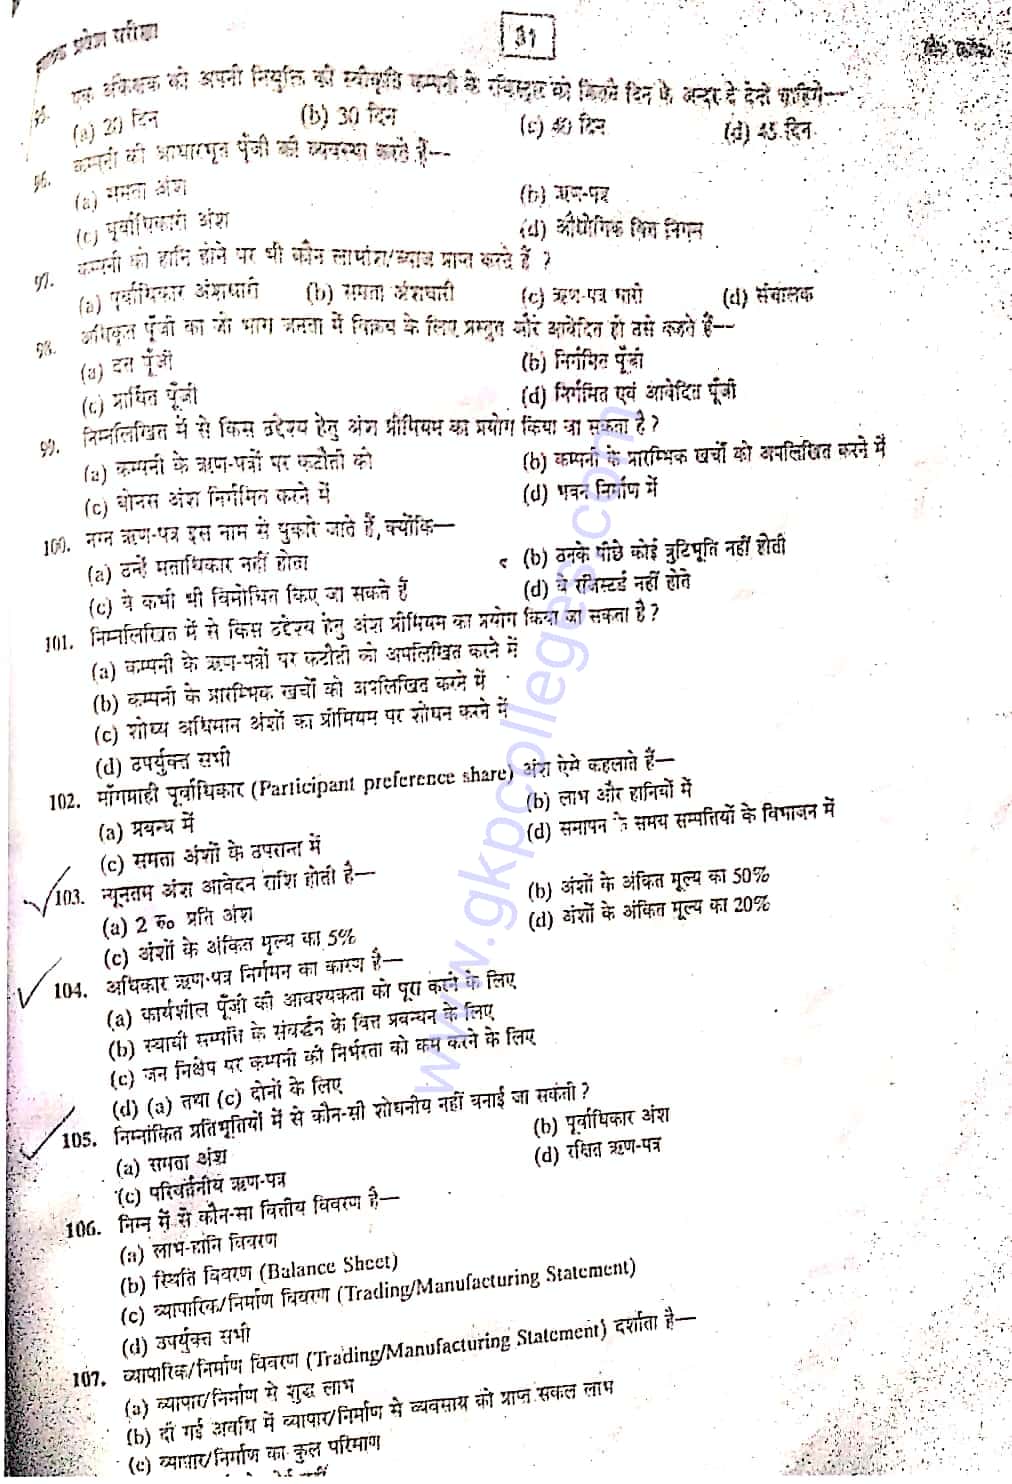 प्रवेश परीक्षा
31
95. एक अंकेक्षक को अपनी नियुक्ति की स्वीकृति कम्पनी के रजिस्ट्रार को कितने दिन के अन्दर दे देनी चाहिये—
(a) 20 दिन (b) 30 दिन (c) 40 दिन (d) 45 दिन
96. कम्पनी की आधारभूत पूँजी की व्यवस्था करते हैं--
(a) समता अंश (b) ऋण-पत्र
(c) पूर्वाधिकारी अंश (d) औद्योगिक वित्त निगम
97. कम्पनी को हानि होने पर भी कौन लाभांश/ब्याज प्राप्त करते हैं ?
(a) पूर्वाधिकार अंशधारी (b) समता अंशधारी (c) ऋण-पत्र धारी (d) संचालक
98. अधिकृत पूँजी का जो भाग जनता में विक्रय के लिए प्रस्तुत और आवेदित हो उसे कहते हैं--
(a) दत्त पूँजी (b) निर्गमित पूँजी
(c) प्रार्थित पूँजी (d) निर्गमित एवं आवेदित पूँजी
99. निम्नलिखित में से किस उद्देश्य हेतु अंश प्रीमियम का प्रयोग किया जा सकता है ?
(a) कम्पनी के ऋण-पत्रों पर कटौती को (b) कम्पनी के प्रारम्भिक खर्चों को अपलिखित करने में
(c) बोनस अंश निर्गमित करने में (d) भवन निर्माण में
100. नग्न ऋण-पत्र इस नाम से पुकारे जाते हैं, क्योंकि—
(a) उन्हें मताधिकार नहीं होता (b) उनके पीछे कोई त्रुटिभूति नहीं होती
(c) वे कभी भी विमोचित किए जा सकते हैं (d) वे रजिस्टर्ड नहीं होते
101. निम्नलिखित में से किस उद्देश्य हेतु अंश प्रीमियम का प्रयोग किया जा सकता है ?
(a) कम्पनी के ऋण-पत्रों पर कटौती को अपलिखित करने में
(b) कम्पनी के प्रारम्भिक खर्चों को अपलिखित करने में
(c) शोध्य अधिमान अंशों का प्रीमियम पर शोधन करने में
(d) उपर्युक्त सभी
102. माँगग्राही पूर्वाधिकार (Participant preference share) अंश ऐसे कहलाते हैं—
(a) प्रबन्ध में (b) लाभ और हानियों में
(c) समता अंशों के उपरान्त में (d) समापन के समय सम्पत्तियों के विभाजन में
103. न्यूनतम अंश आवेदन राशि होती है—
(a) 2 रु० प्रति अंश (b) अंशों के अंकित मूल्य का 50%
(c) अंशों के अंकित मूल्य का 5% (d) अंशों के अंकित मूल्य का 20%
104. अधिकार ऋण-पत्र निर्गमन का कारण है—
(a) कार्यशील पूँजी की आवश्यकता को पूरा करने के लिए
(b) स्थायी सम्पत्ति के संवर्द्धन के वित्त प्रबन्धन के लिए
(c) जन निक्षेप पर कम्पनी की निर्भरता को कम करने के लिए
(d) (a) तथा (c) दोनों के लिए
105. निम्नांकित प्रतिभूतियों में से कौन-सी शोधनीय नहीं बनाई जा सकती ?
(a) समता अंश (b) पूर्वाधिकार अंश
(c) परिवर्तनीय ऋण-पत्र (d) रक्षित ऋण-पत्र
106. निम्न में से कौन-सा वित्तीय विवरण है—
(a) लाभ-हानि विवरण
(b) स्थिति विवरण (Balance Sheet)
(c) व्यापारिक/निर्माण विवरण (Trading/Manufacturing Statement)
(d) उपर्युक्त सभी
107. व्यापारिक/निर्माण विवरण (Trading/Manufacturing Statement) दर्शाता है—
(a) व्यापार/निर्माण से शुद्ध लाभ
(b) दी गई अवधि में व्यापार/निर्माण से व्यवसाय को प्राप्त सकल लाभ
(c) व्यापार/निर्माण का कुल परिमाण
www.gkpcolleges.com